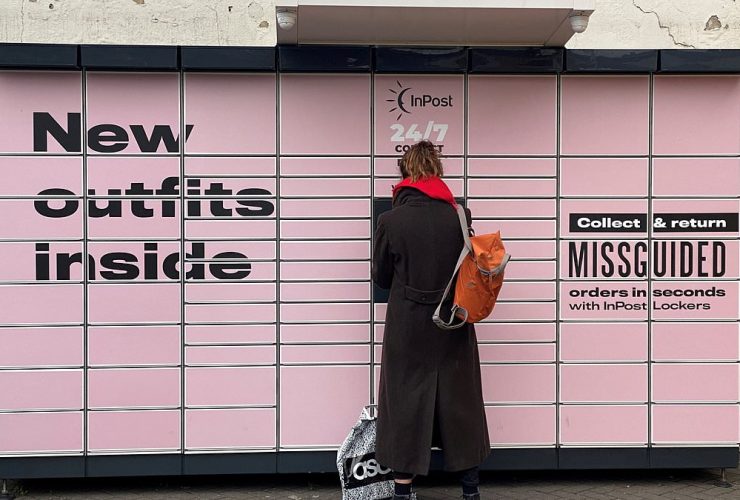 New
outfits
inside
InPost
24/7
Collect & return
MISSGUIDED
orders in seconds
with InPost Lockers
asos